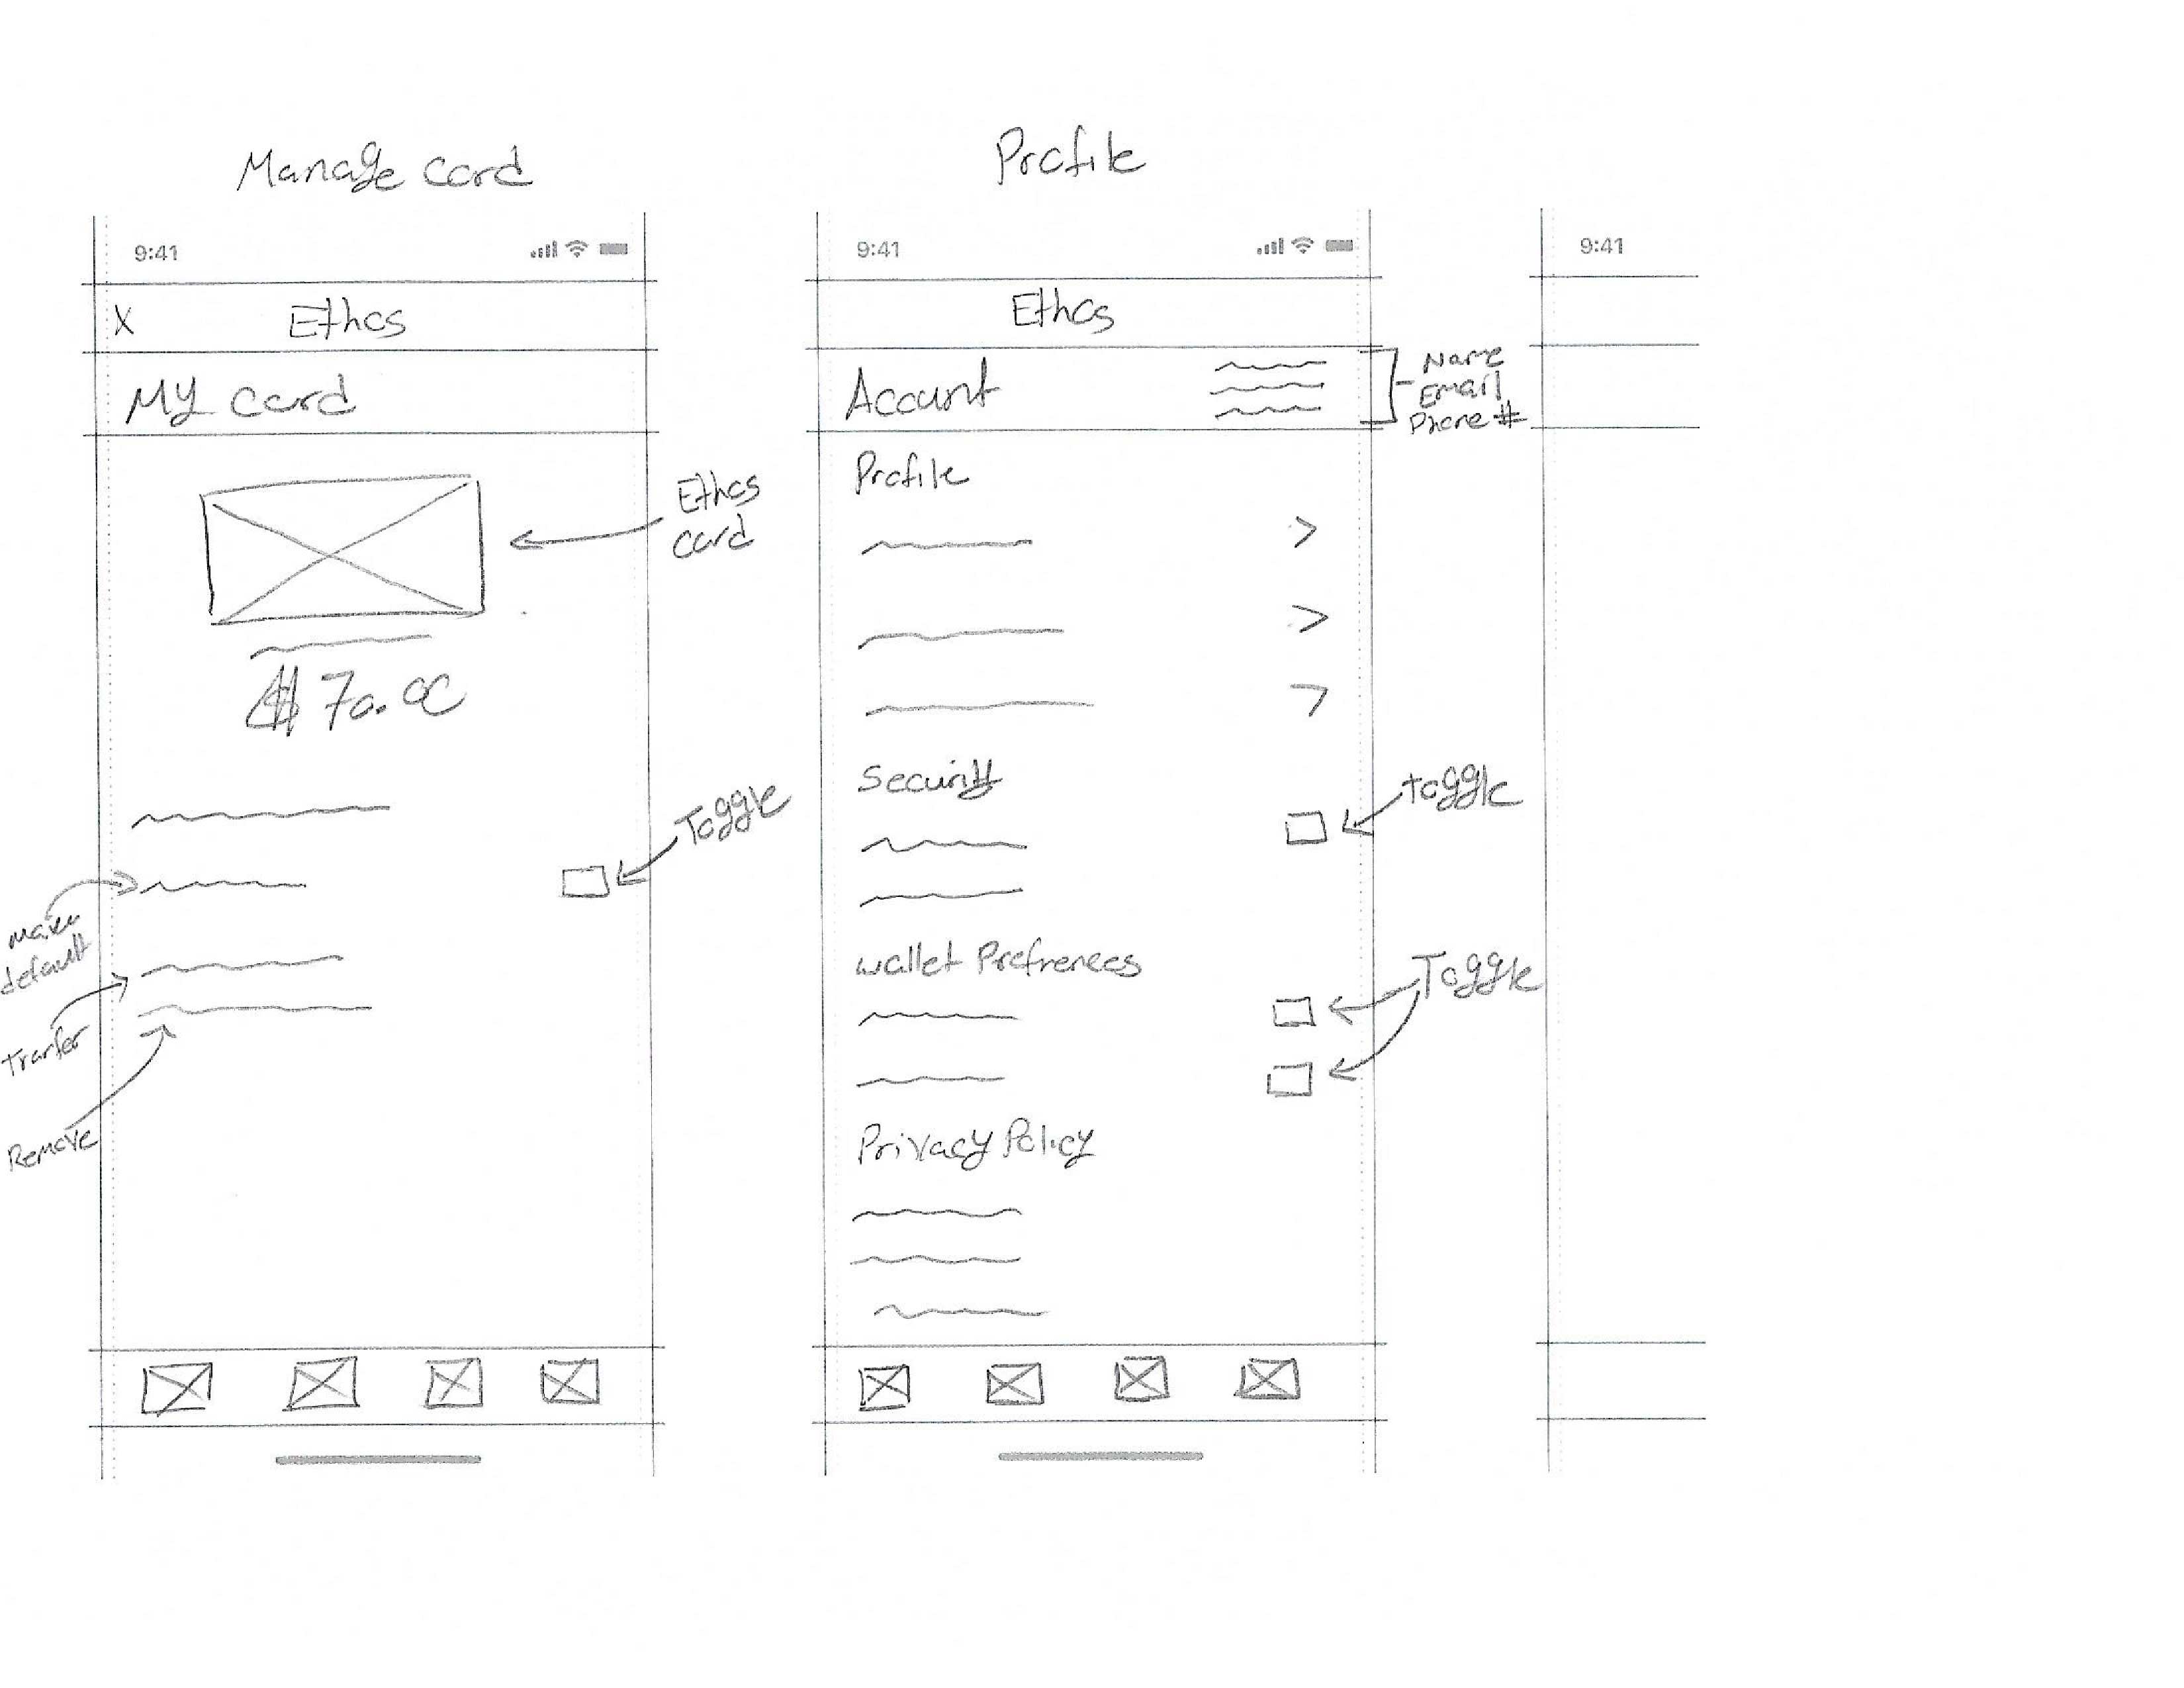 Manage card
9:41
X Ethos
My card
Ethos
card
$70.00
Toggle
make
default
Tranfer
Remove
Profile
9:41
Ethos
Account
Name
Email
Phone #
Profile
Security
toggle
wallet Prefrences
Toggle
Privacy Policy
9:41